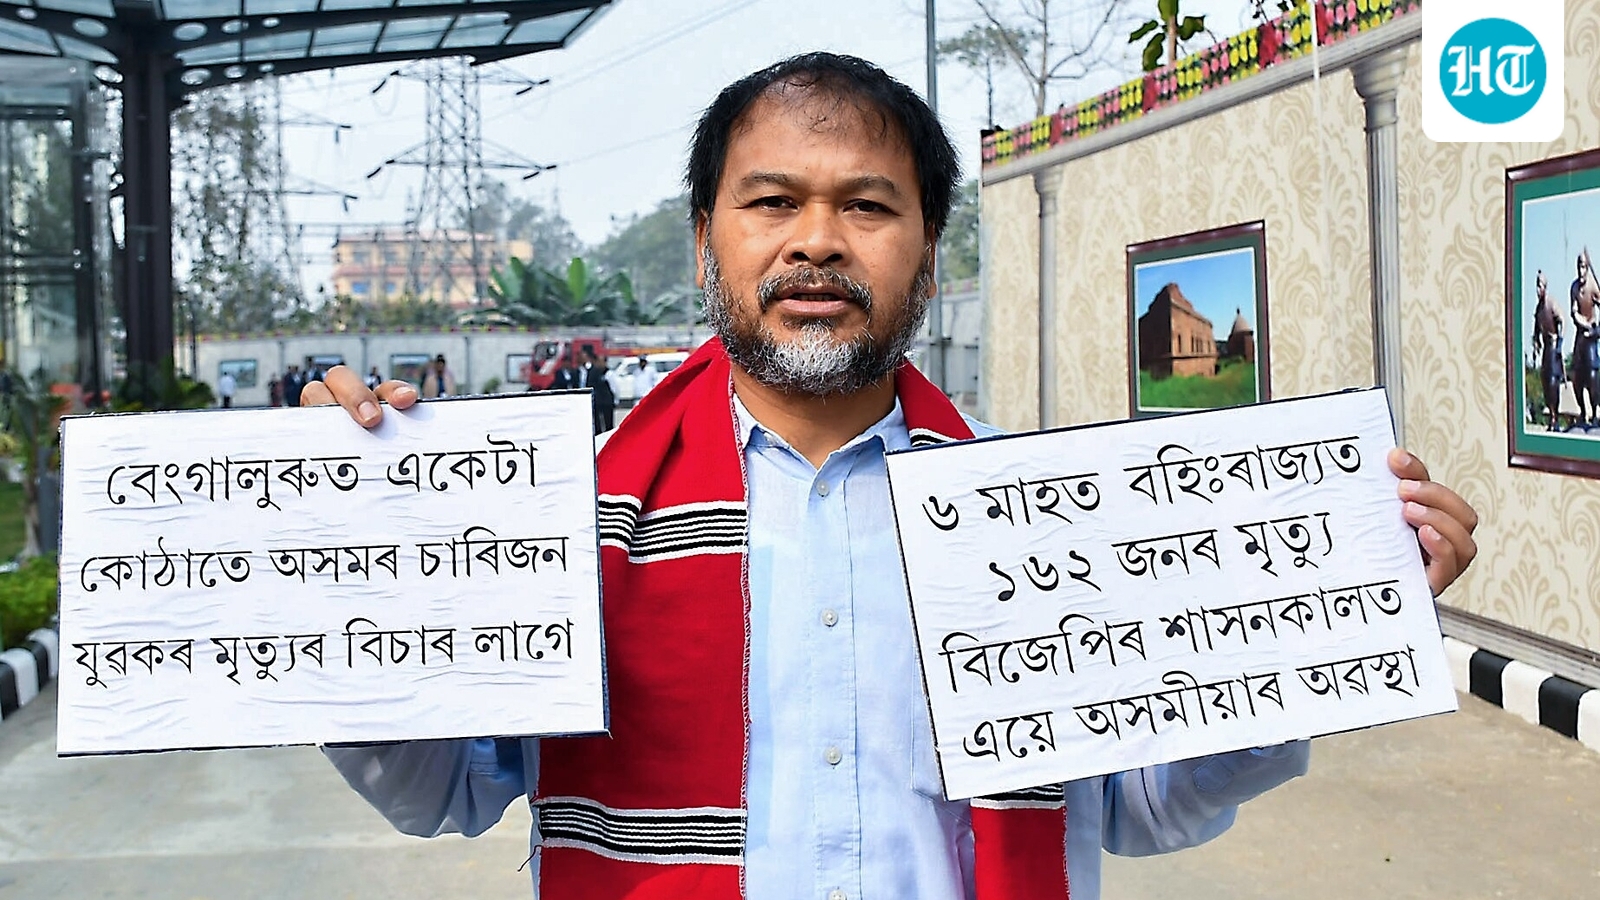 HT
বেংগালুৰুত একেটা
কোঠাতে অসমৰ চাৰিজন
যুৱকৰ মৃত্যুৰ বিচাৰ লাগে
৬ মাহত বহিঃৰাজ্যত
১৬২ জনৰ মৃত্যু
বিজেপিৰ শাসনকালত
এয়ে অসমীয়াৰ অৱস্থা